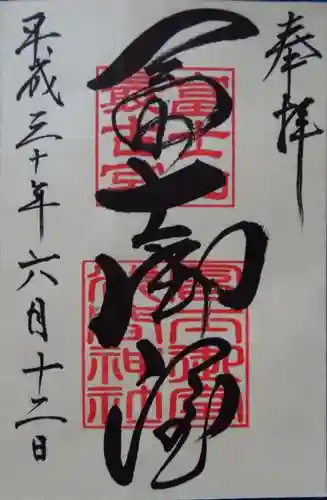 奉拝
冨士御室
富士山
最古宮
冨士御室
浅間神社
平成三十年六月十二日